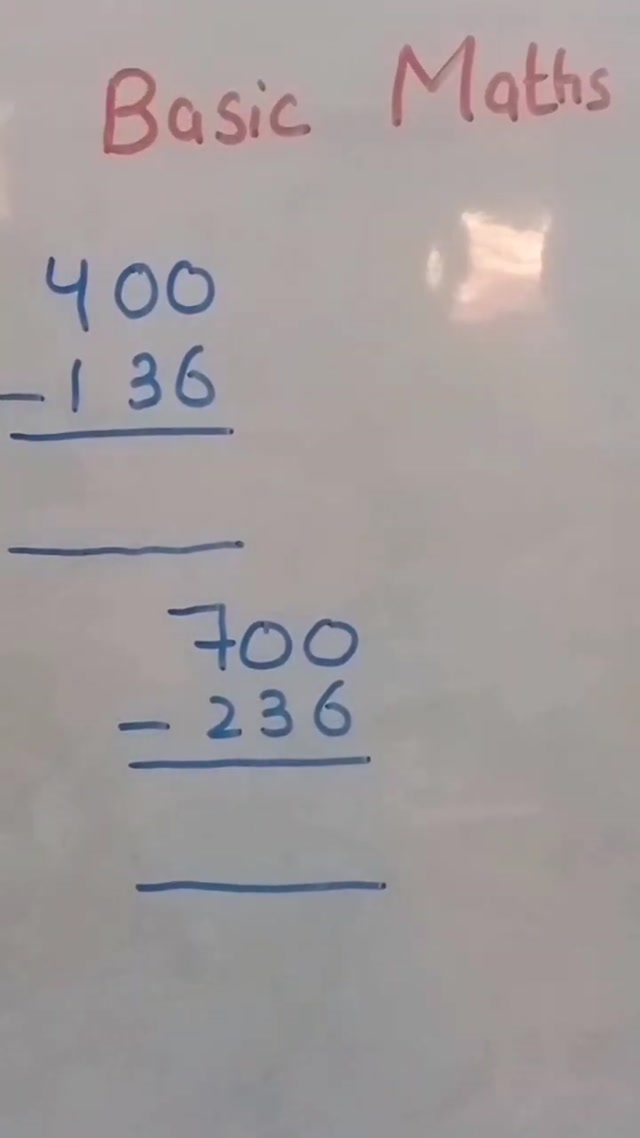 Basic Maths
400
- 136
700
- 236